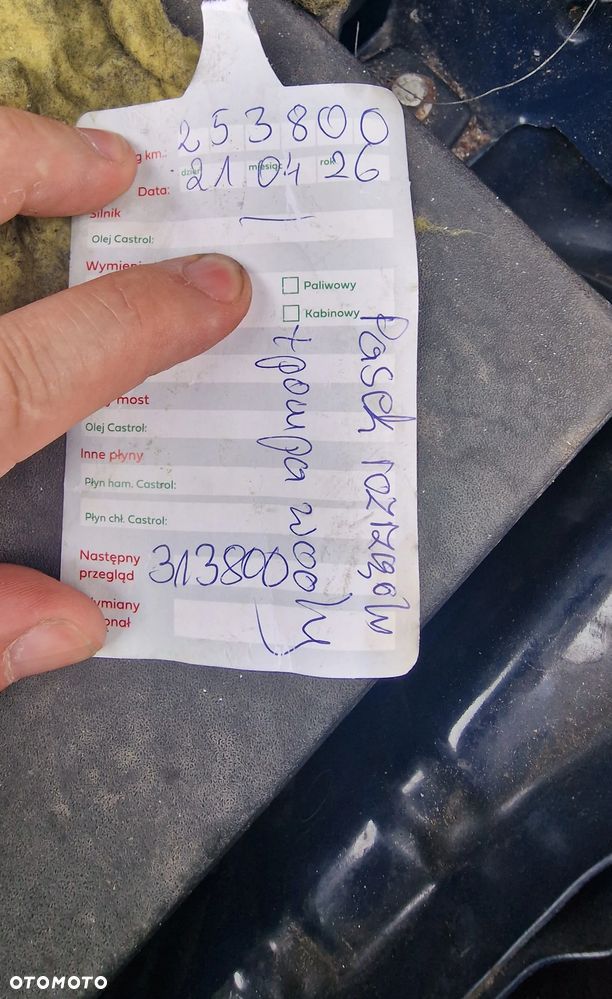 253800
g km.:
dzień miesiąc rok
Data: 21 04 26
Silnik
Olej Castrol:
Wymieni
Paliwowy
Kabinowy
most
Olej Castrol:
Inne płyny
Płyn ham. Castrol:
Płyn chł. Castrol:
Następny przegląd 313800
ymiany
onał
Pasek rozrządu
+ pompa wody
OTOMOTO